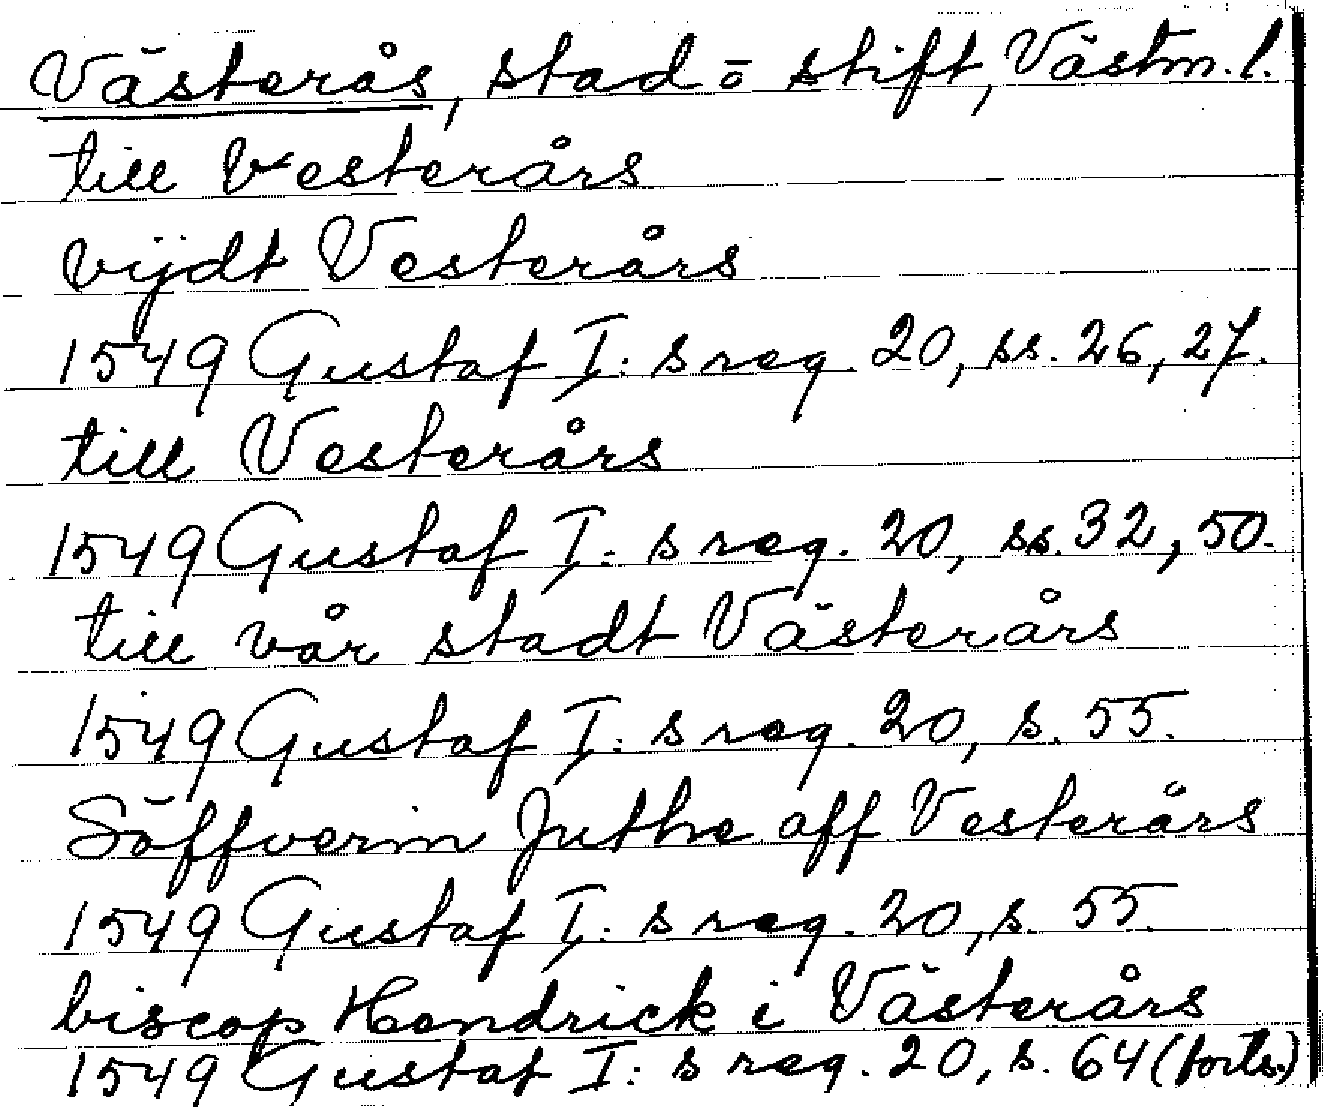 Västerås, stad o stift, Västm. l.
till Vesterårs
vijdt Vesterårs
1549 Gustaf I: s reg. 20, ss. 26, 27.
till Vesterårs
1549 Gustaf I: s reg. 20, ss. 32, 50.
till vår stadt Västerårs
1549 Gustaf I: s reg. 20, s. 55.
Söffverin Juthe aff Vesterårs
1549 Gustaf I: s reg. 20, s. 55.
biscop Hendrick i Västerårs
1549 Gustaf I: s reg. 20, s. 64 (forts.)